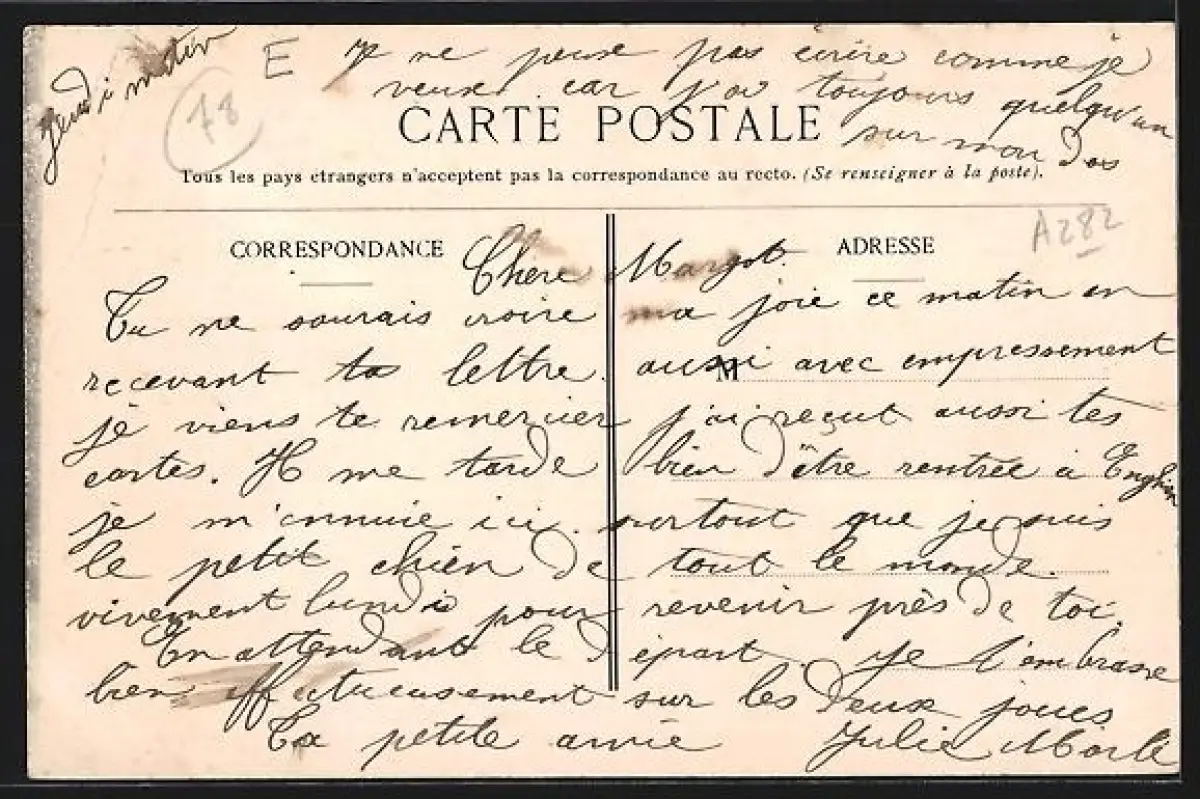 Jeudi matin
78
E
Je ne peux pas écrire comme je
veux car j'ai toujours quelqu'un
sur mon dos
CARTE POSTALE
Tous les pays étrangers n'acceptent pas la correspondance au recto. (Se renseigner à la poste).
A282
CORRESPONDANCE
ADRESSE
Chère Margot
Tu ne saurais croire ma joie ce matin en
recevant ta lettre. aussi avec empressement
M
je viens te remercier j'ai reçut aussi tes
cartes. Il me tarde bien d'être rentrée à Enghien
je m'ennuie ici surtout que je suis
le petit chien de tout le monde.
vivement lundi pour revenir près de toi.
En attendant le départ. je t'embrasse
bien affectueusement sur les deux joues
Ta petite amie Julie